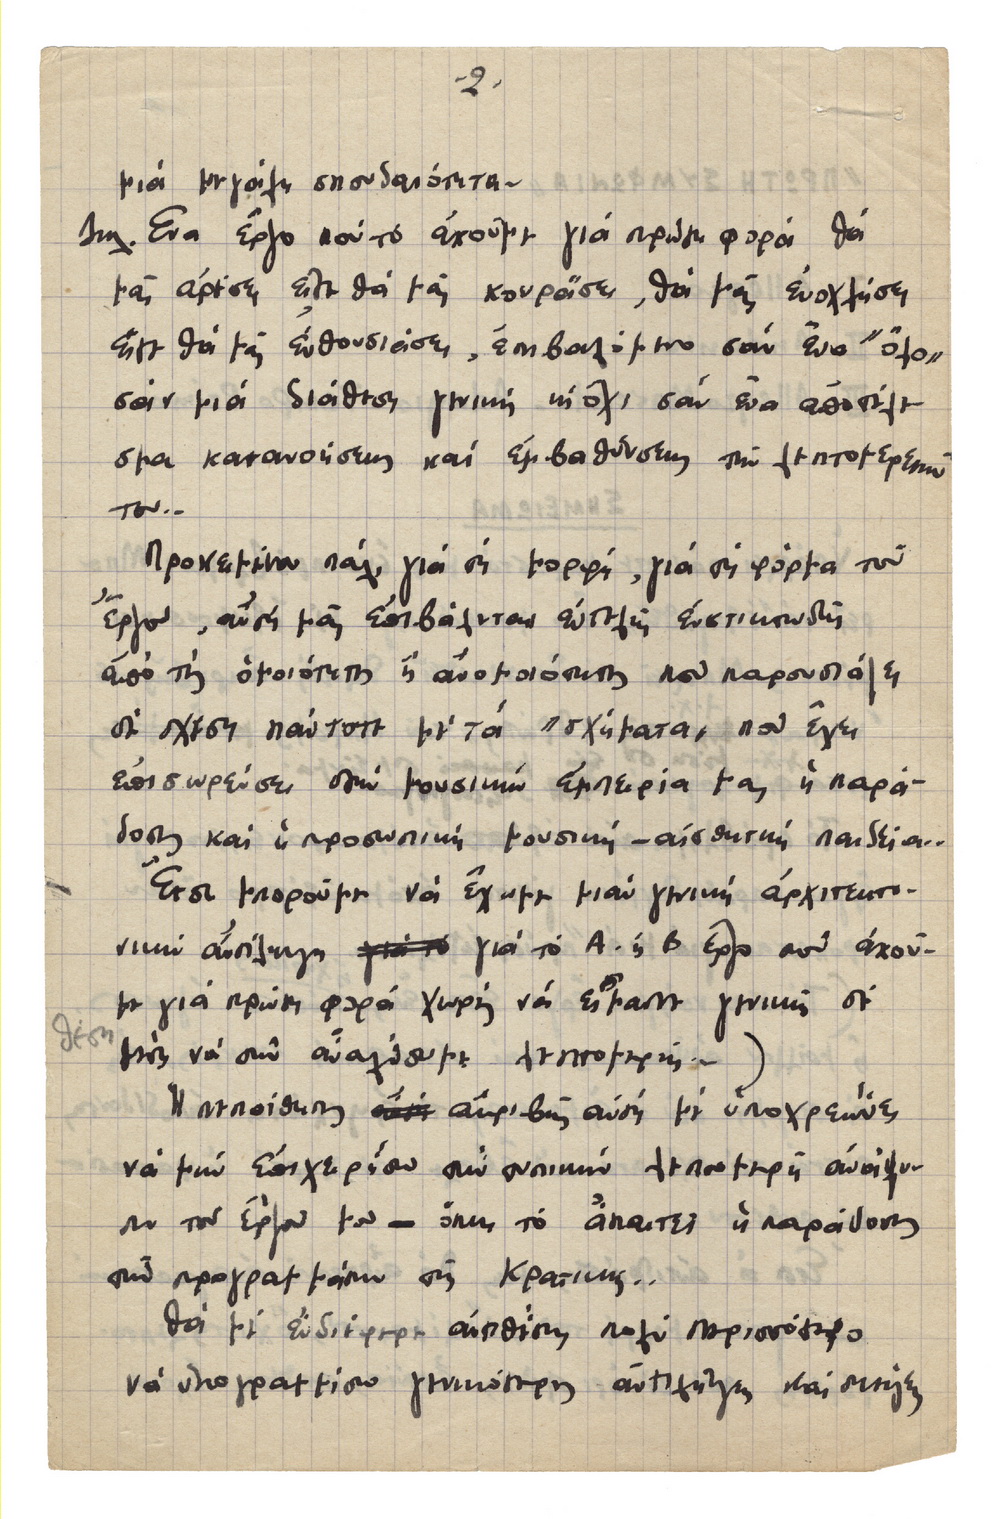 -2-
μιά μεγάλη σπουδαιότητα-
Δηλ. Ένα ἔργο πού τό ἀκοῦμε γιά πρώτη φορά θά
μᾶς ἀρέσει εἴτε θά μᾶς κουράσει, θά μᾶς ἐνοχλήσει
εἴτε θά μᾶς ἐνθουσιάσει, ἐπιβαλόμενο σάν ἕνα "ὅλο"
σάν μιά διάθεση γενική κι ὄχι σάν ἕνα ἀποτέλε
σμα κατανοήσεως καί ἐμβαθύνσεως τῶν λεπτομερειῶν
του..
Προκειμένου πάλι γιά τή μορφή, γιά τή φόρμα τοῦ
ἔργου, αὐτή μᾶς ἐπιβάλεται εὐτελῆς ἐνστικτωδῶς
ἀπό τῆς ὁμοιότητος ἤ ἀνομοιότητος πού παρουσιάζει
σέ σχέση πάντοτε μέ τά "σχήματα" πού ἔχει
ἐπισωρεύσει στήν μουσικήν ἐμπειρία μας ἡ παρά-
δοση καί ἡ προσωπική μουσική-αἰσθητική παιδεία..
Ἔτσι μποροῦμε νά ἔχωμε μιάν γενική ἀρχιτεκτο-
νική ἀντίληψη γιά τό γιά τό Α. ἤ Β ἔργο πού ἀκοῦ-
με γιά πρώτη φορά χωρίς νά εἴμαστε γενικῶς σέ
θέση
θέση νά τήν ἀναλύσωμε λεπτομερῶς-)
Ἡ πεποίθησης αὐτή ἀκριβῶς αὐτή μέ ὑποχρεώνει
νά μήν ἐπιχειρήσω τήν τυπικήν λεπτομερῆ ἀνάλυ-
ση τοῦ ἔργου μου - ὅπως τό ἀπαιτεῖ ἡ παράδοσης
τῶν προγραμμάτων τῆς Κρατικῆς..
Θά μέ ἐνδιέφερε ἀντιθέτως πολύ περισσότερο
νά ὑπογραμμίσω γενικότερες ἀντιλήψεις καί σκέψεις